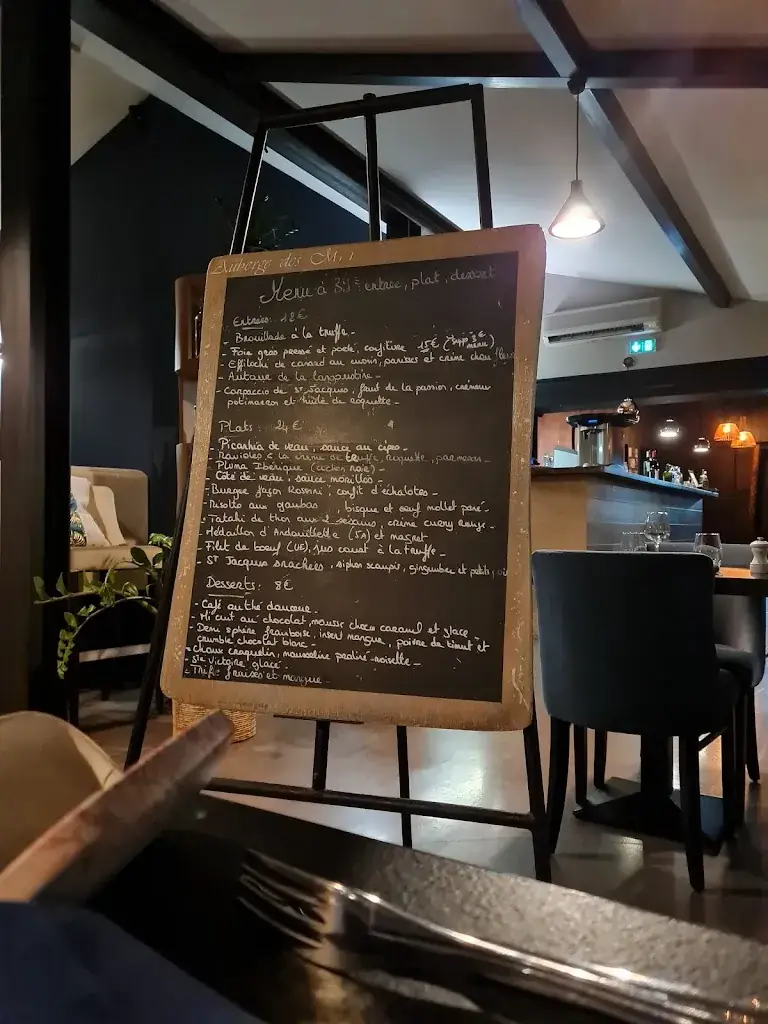 Auberge des
Menu à 35€ entrée, plat, dessert
Entrées: 12€
- Brouillade à la truffe -
- Foie gras pressé et poché, confiture 15€ (supp 3€ menu)
- Effiloché de canard au cumin, panisses et crème chou fleur
- Autour de la langoustine -
- Carpaccio de St Jacques, fruit de la passion, crémeux
potimarron et huile de roquette -
Plats: 24€
- Picanhia de veau, sauce au cèpes -
- Ravioles à la crème de truffe, roquette, parmesan -
- Pluma Ibérique (cochon noir) -
- Côte de veau, sauce morilles
- Burger façon Rossini, confit d'échalotes -
- Risotto aux gambas, bisque et oeuf mollet pané -
- Tataki de thon aux 2 sésames, crème curry rouge -
- Médaillon d'Andouillette (5A) et magret
- Filet de boeuf (UE), jus court à la truffe -
- St Jacques snackées, siphon, gingembre et petits pois
Desserts: 8€
- Café ou thé douceur -
- Mi cuit au chocolat, mousse choco caramel et glace -
- Demi sphère framboise, insert mangue, poivre de timut et
crumble chocolat blanc -
- choux craquelin, mousseline praliné-noisette -
- Ste victoire glacé -
- fraises et mangue -